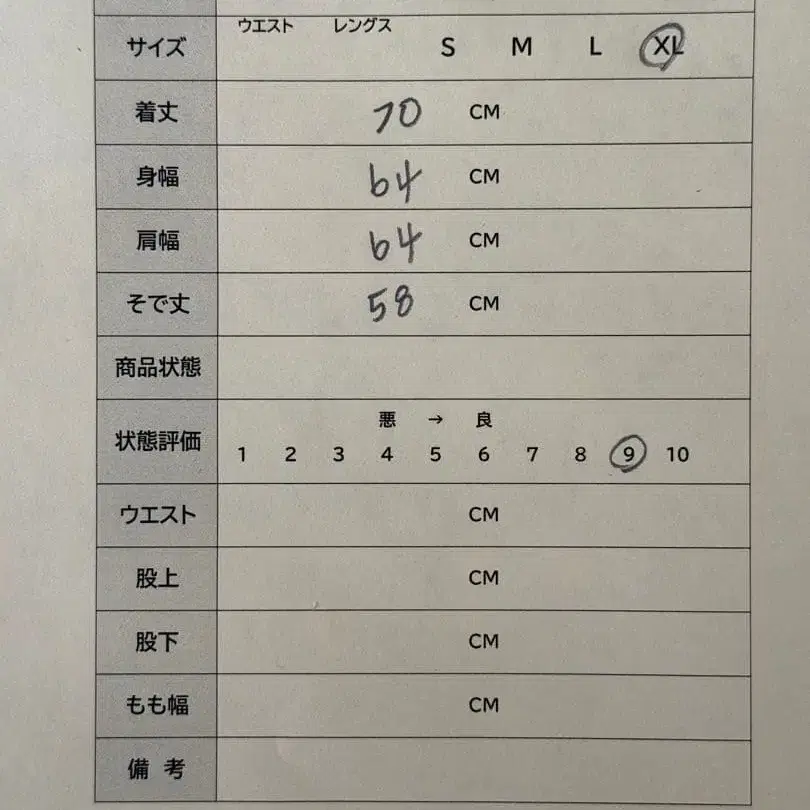 ウエスト レングス
サイズ S M L XL
着丈 70 CM
身幅 64 CM
肩幅 64 CM
そで丈 58 CM
商品状態
悪 → 良
状態評価 1 2 3 4 5 6 7 8 9 10
ウエスト CM
股上 CM
股下 CM
もも幅 CM
備 考